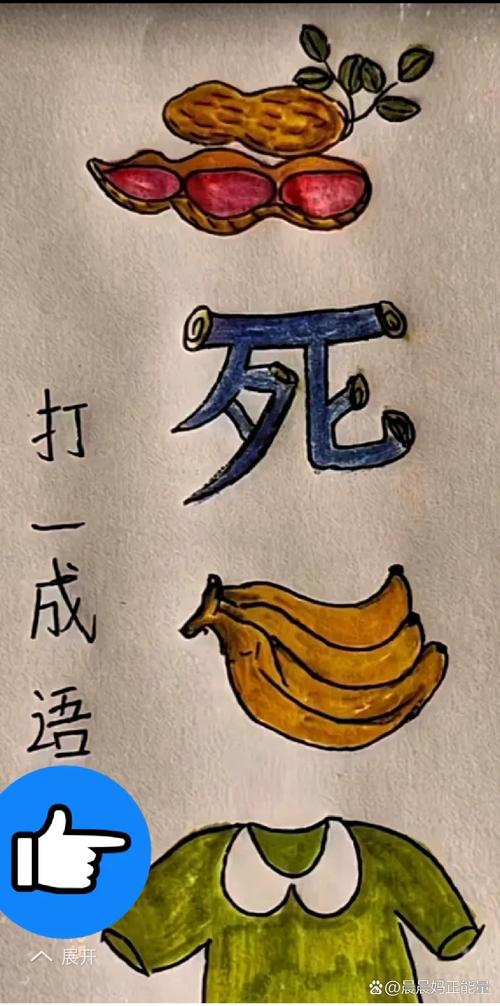 死
打一成语
展开
@晨晨妈正能量